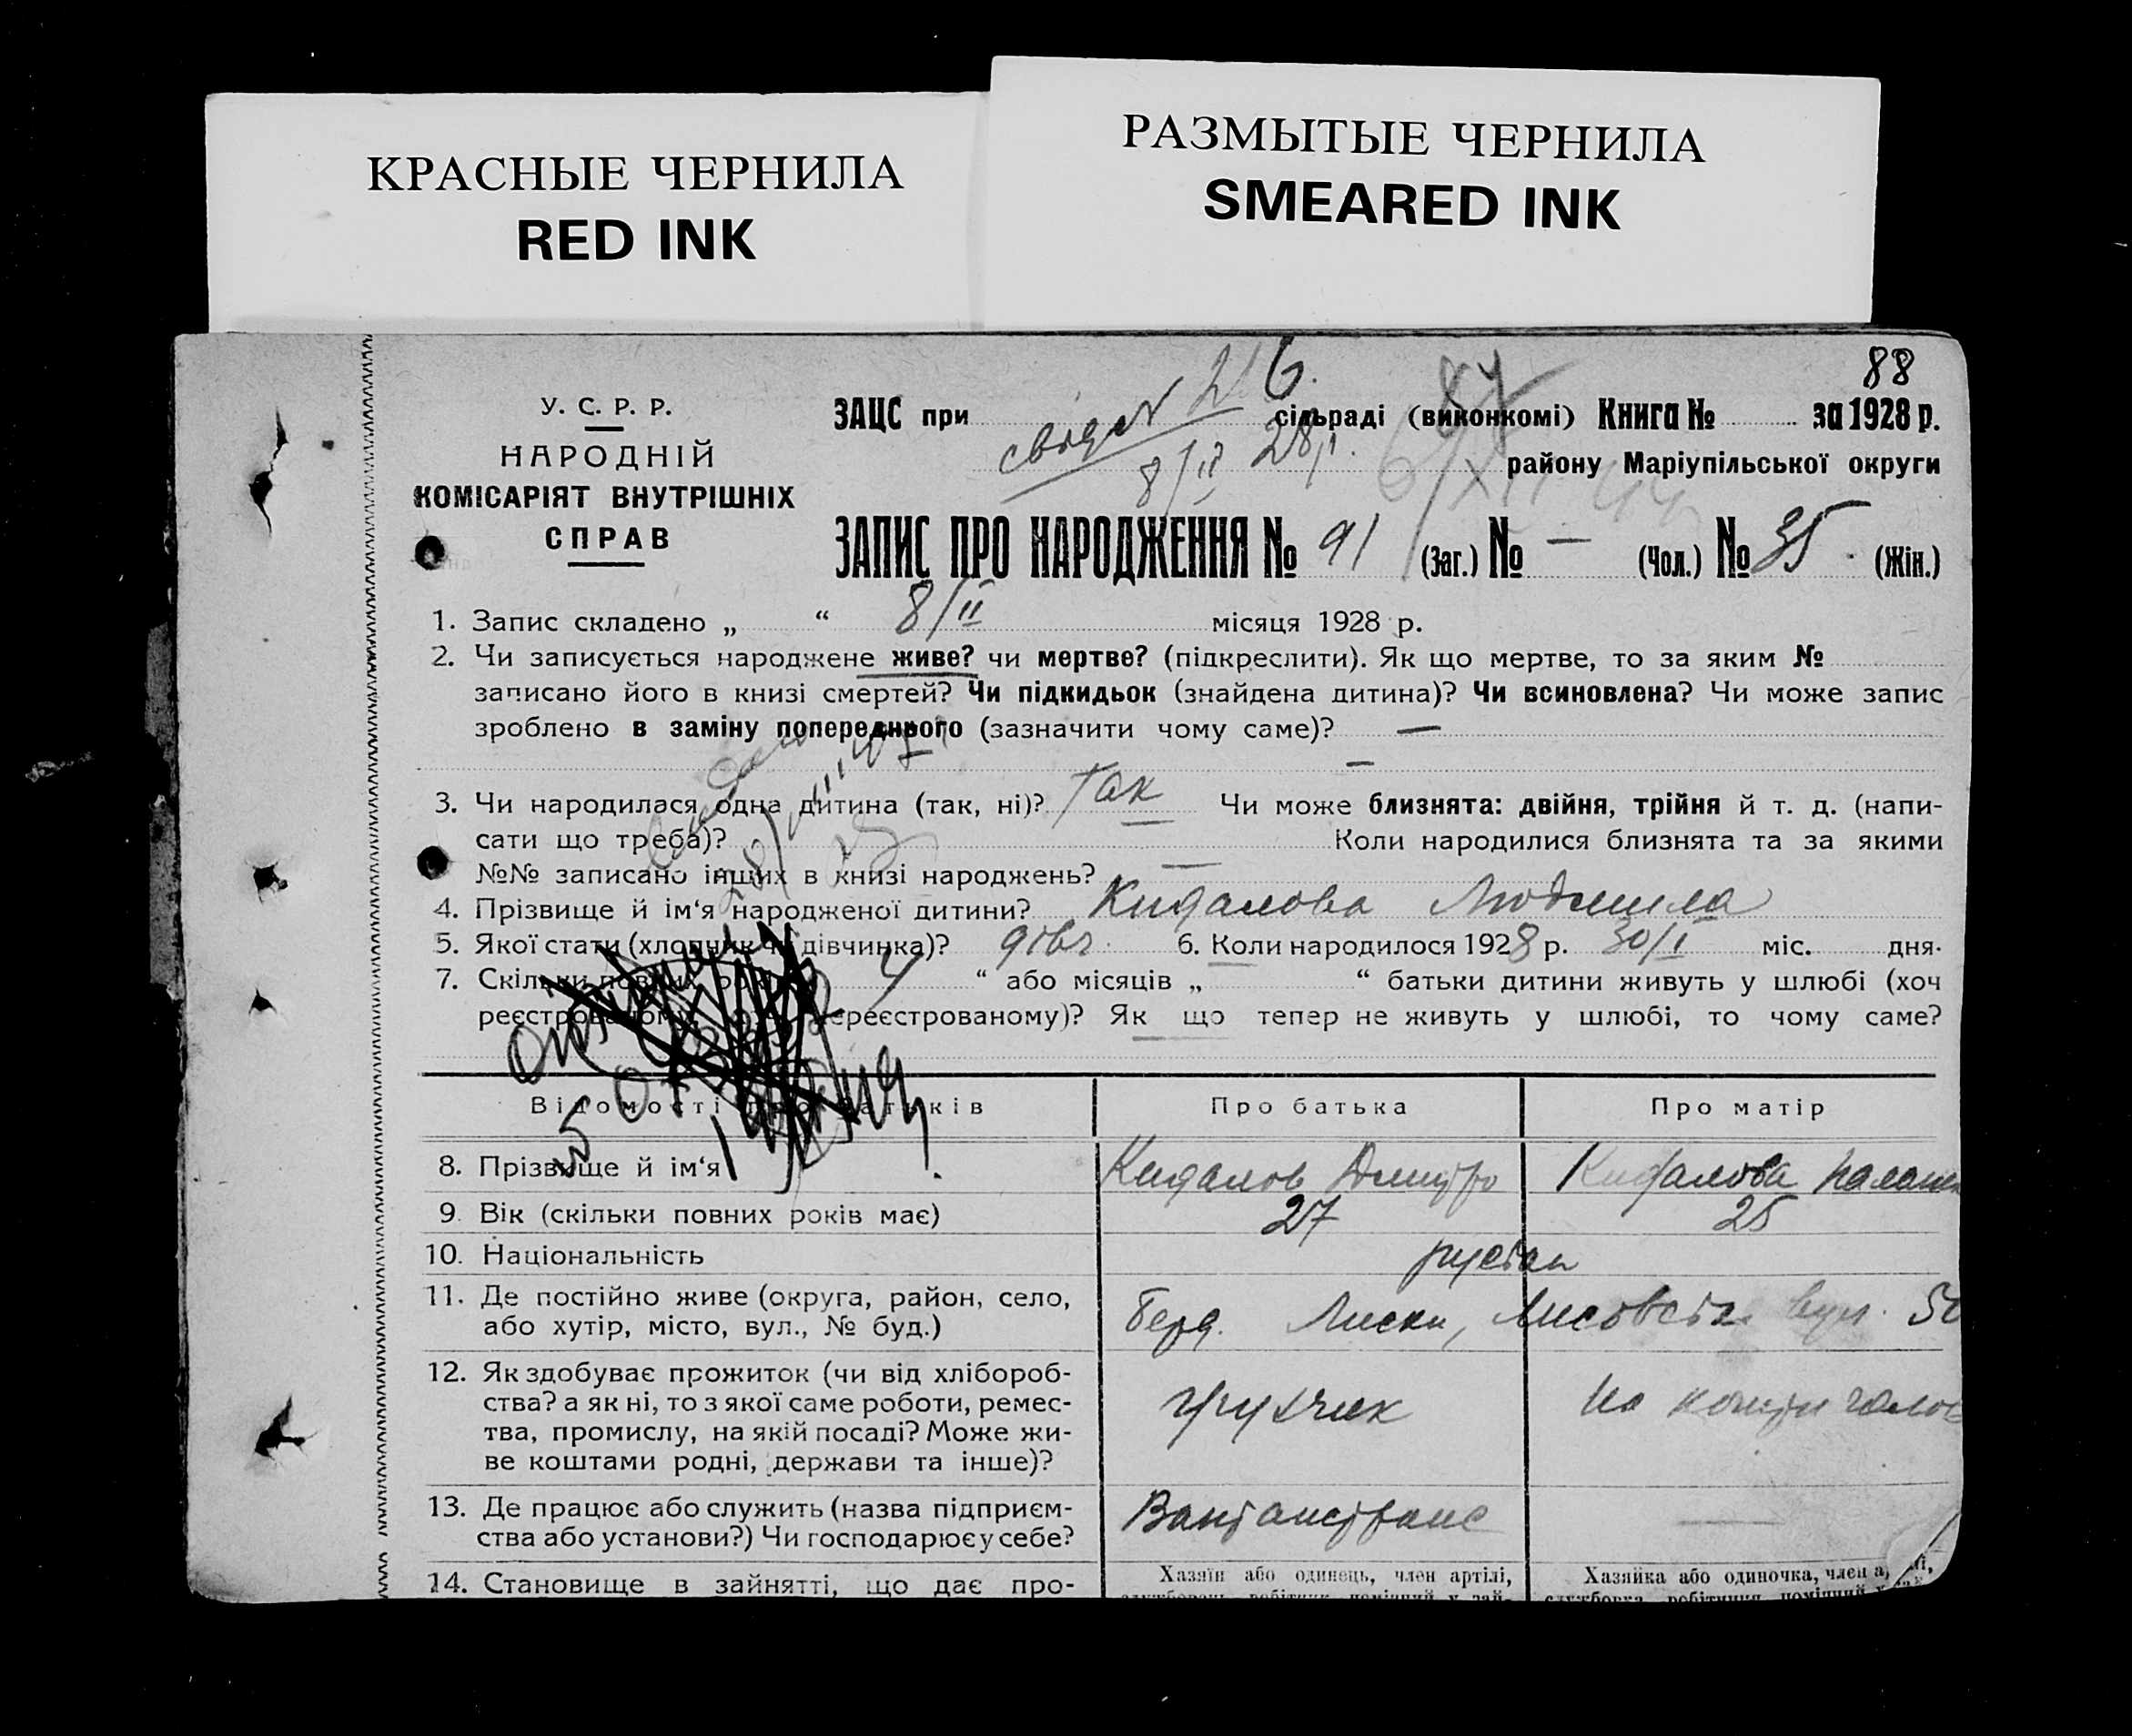 КРАСНЫЕ ЧЕРНИЛА
RED INK
РАЗМЫТЫЕ ЧЕРНИЛА
SMEARED INK
88
У. С. Р. Р.
НАРОДНІЙ
КОМІСАРІЯТ ВНУТРІШНІХ
СПРАВ
ЗАЦС при сільраді (виконкомі) Книга № за 1928 р.
8/II 28 р.
району Маріупільської округи
ЗАПИС ПРО НАРОДЖЕННЯ № 91 (Заг.) № — (Чол.) № 35 (Жін.)
1. Запис складено „ “ 8/II місяця 1928 р.
2. Чи записується народжене живе? чи мертве? (підкреслити). Як що мертве, то за яким №
записано його в книзі смертей? Чи підкидьок (знайдена дитина)? Чи всиновлена? Чи може запис
зроблено в заміну попереднього (зазначити чому саме)? —
—
3. Чи народилася одна дитина (так, ні)? Так Чи може близнята: двійня, трійня й т. д. (напи-
сати що треба)? Коли народилися близнята та за якими
№№ записано інших в книзі народжень? —
4. Прізвище й ім‘я народженої дитини? Кидалова Людмила
5. Якої стати (хлопчик чи дівчинка)? дівч. 6. Коли народилося 1928 р. 30/I міс. дня.
7. Скільки повних років 4 “ або місяців „ “ батьки дитини живуть у шлюбі (хоч
реєстрованому, нереєстрованому)? Як що тепер не живуть у шлюбі, то чому саме?
Відомості про батьків
Про батька
Про матір
8. Прізвище й ім‘я
Кидалов Дмитро
Кидалова
9. Вік (скільки повних років має)
27
25
10. Національність
11. Де постійно живе (округа, район, село,
або хутір, місто, вул., № буд.)
Берд. Лиски, вул. 50
12. Як здобуває прожиток (чи від хлібороб-
ства? а як ні, то з якої саме роботи, ремес-
тва, промислу, на якій посаді? Може жи-
ве коштами родні, держави та інше)?
грузчик
На кошти
13. Де працює або служить (назва підприєм-
ства або установи?) Чи господарює у себе?
—
14. Становище в зайнятті, що дає про-
Хазяїн або одинець, член артілі,
Хазяйка або одиночка, член